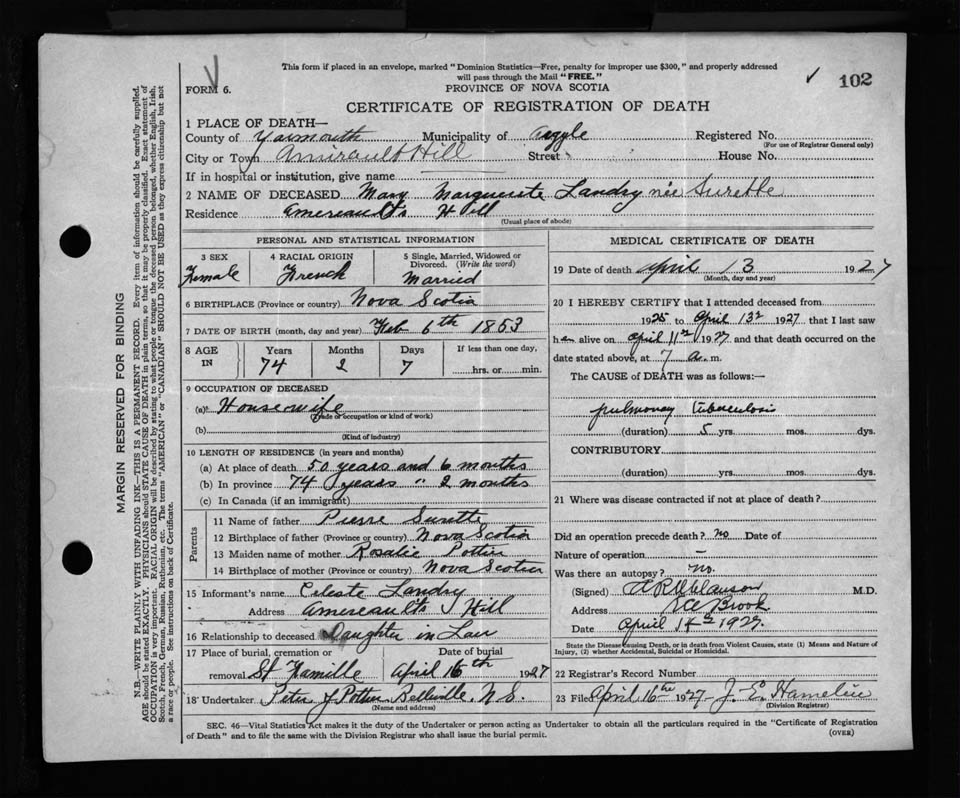 This form if placed in an envelope, marked "Dominion Statistics—Free, penalty for improper use $300," and properly addressed
will pass through the Mail "FREE."
FORM 6.
PROVINCE OF NOVA SCOTIA
102
CERTIFICATE OF REGISTRATION OF DEATH
1 PLACE OF DEATH—
County of Yarmouth Municipality of Argyle Registered No.
(For use of Registrar General only)
City or Town Amirault Hill Street House No.
If in hospital or institution, give name
2 NAME OF DECEASED Mary Marguerite Landry née Surette
Residence Amereault's Hill
(Usual place of abode)
PERSONAL AND STATISTICAL INFORMATION
3 SEX 4 RACIAL ORIGIN 5 Single, Married, Widowed or
Divorced. (Write the word)
Female French Married
6 BIRTHPLACE (Province or country) Nova Scotia
7 DATE OF BIRTH (month, day and year) Feb 6th 1853
8 AGE IN Years Months Days If less than one day,
74 2 7 hrs. or min.
9 OCCUPATION OF DECEASED
(a) Housewife
(Trade or occupation or kind of work)
(b)
(Kind of industry)
10 LENGTH OF RESIDENCE (in years and months)
(a) At place of death 50 years and 6 months
(b) In province 74 years " 2 months
(c) In Canada (if an immigrant)
Parents
11 Name of father Pierre Surette
12 Birthplace of father (Province or country) Nova Scotia
13 Maiden name of mother Rosalie Pottier
14 Birthplace of mother (Province or country) Nova Scotia
15 Informant's name Celeste Landry
Address Amereault's Hill
16 Relationship to deceased Daughter in Law
17 Place of burial, cremation or Date of burial
removal St Famille April 16th 1927
18 Undertaker Peter J Pottier Belleville, N.S.
(Name and address)
MEDICAL CERTIFICATE OF DEATH
19 Date of death April 13 1927
(Month, day and year)
20 I HEREBY CERTIFY that I attended deceased from
1925 to April 13 1927 that I last saw
h er alive on April 11 1927 and that death occurred on the
date stated above, at 7 a. m.
The CAUSE of DEATH was as follows:—
pulmonary tuberculosis
(duration) 5 yrs. mos. dys.
CONTRIBUTORY
(duration) yrs. mos. dys.
21 Where was disease contracted if not at place of death?
Did an operation precede death? no Date of
Nature of operation –
Was there an autopsy? no.
(Signed) M.D.
Address Brook
Date April 14 1927.
State the Disease causing Death, or in death from Violent Causes, state (1) Means and Nature of
Injury, (2) whether Accidental, Suicidal or Homicidal.
22 Registrar's Record Number
23 Filed April 16th 1927 J. E. Hamelin
(Division Registrar)
SEC. 46—Vital Statistics Act makes it the duty of the Undertaker or person acting as Undertaker to obtain all the particulars required in the "Certificate of Registration
of Death" and to file the same with the Division Registrar who shall issue the burial permit.
(OVER)
MARGIN RESERVED FOR BINDING
N.B.—WRITE PLAINLY WITH UNFADING INK—THIS IS A PERMANENT RECORD. Every item of information should be carefully supplied.
AGE should be stated EXACTLY. PHYSICIANS should STATE CAUSE OF DEATH in plain terms, so that it may be properly classified. Exact statement of
OCCUPATION is very important. RACIAL ORIGIN will be described by stating to what people or tongue the deceased person belonged, whether English, Irish,
Scotch, French, German, Russian, Ruthenian, etc. The terms "AMERICAN" or "CANADIAN" SHOULD NOT BE USED as they express citizenship but not
a race or people. See instructions on back of Certificate.